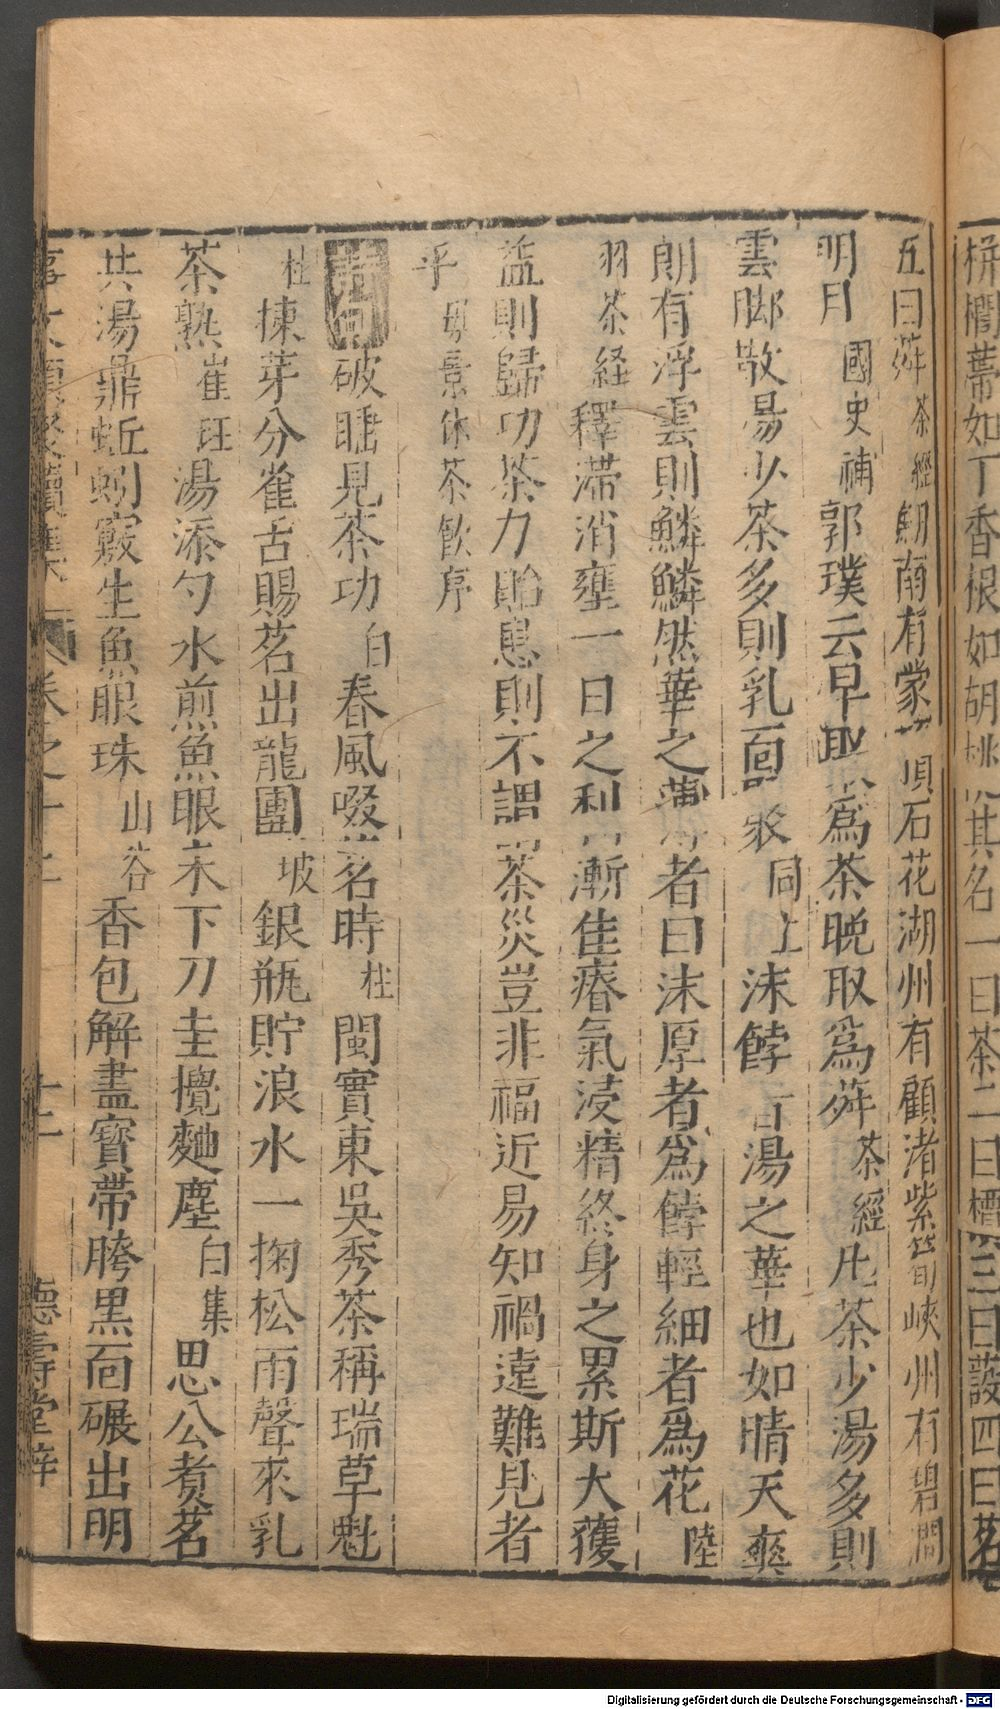 栟櫚蒂如丁香根如胡桃其名一曰茶二曰檟三曰蔎四曰茗
五曰荈茶經劍南有蒙頂石花湖州有顧渚紫筍峽州有碧澗
明月國史補郭璞云早取爲茶晚取爲荈茶經凡茶少湯多則
雲脚散湯少茶多則乳面聚同上沫餑言湯之華也如晴天爽
朗有浮雲則鱗鱗然華之薄者曰沫厚者爲餑輕細者爲花陸
羽茶経釋滯消壅一日之利漸佳瘠氣浸精終身之累斯大獲
益則歸功茶力貽患則不謂茶災豈非福近易知禍遠難見者
乎母景休茶飲序
破睡見茶功白春風啜茗時杜閩實東吳秀茶稱瑞草魁
杜揀芽分雀舌賜茗出龍團坡銀瓶貯浪水一掬松雨聲來乳
茶熟崔珏湯添勺水煎魚眼末下刀圭攪麯塵白集思公煑茗
共湯鼎蚯蚓竅生魚眼珠山谷香包解盡寳帶胯黒面碾出明
事文類聚續集 卷之十二 十二 德壽堂梓
Digitalisierung gefördert durch die Deutsche Forschungsgemeinschaft - DFG